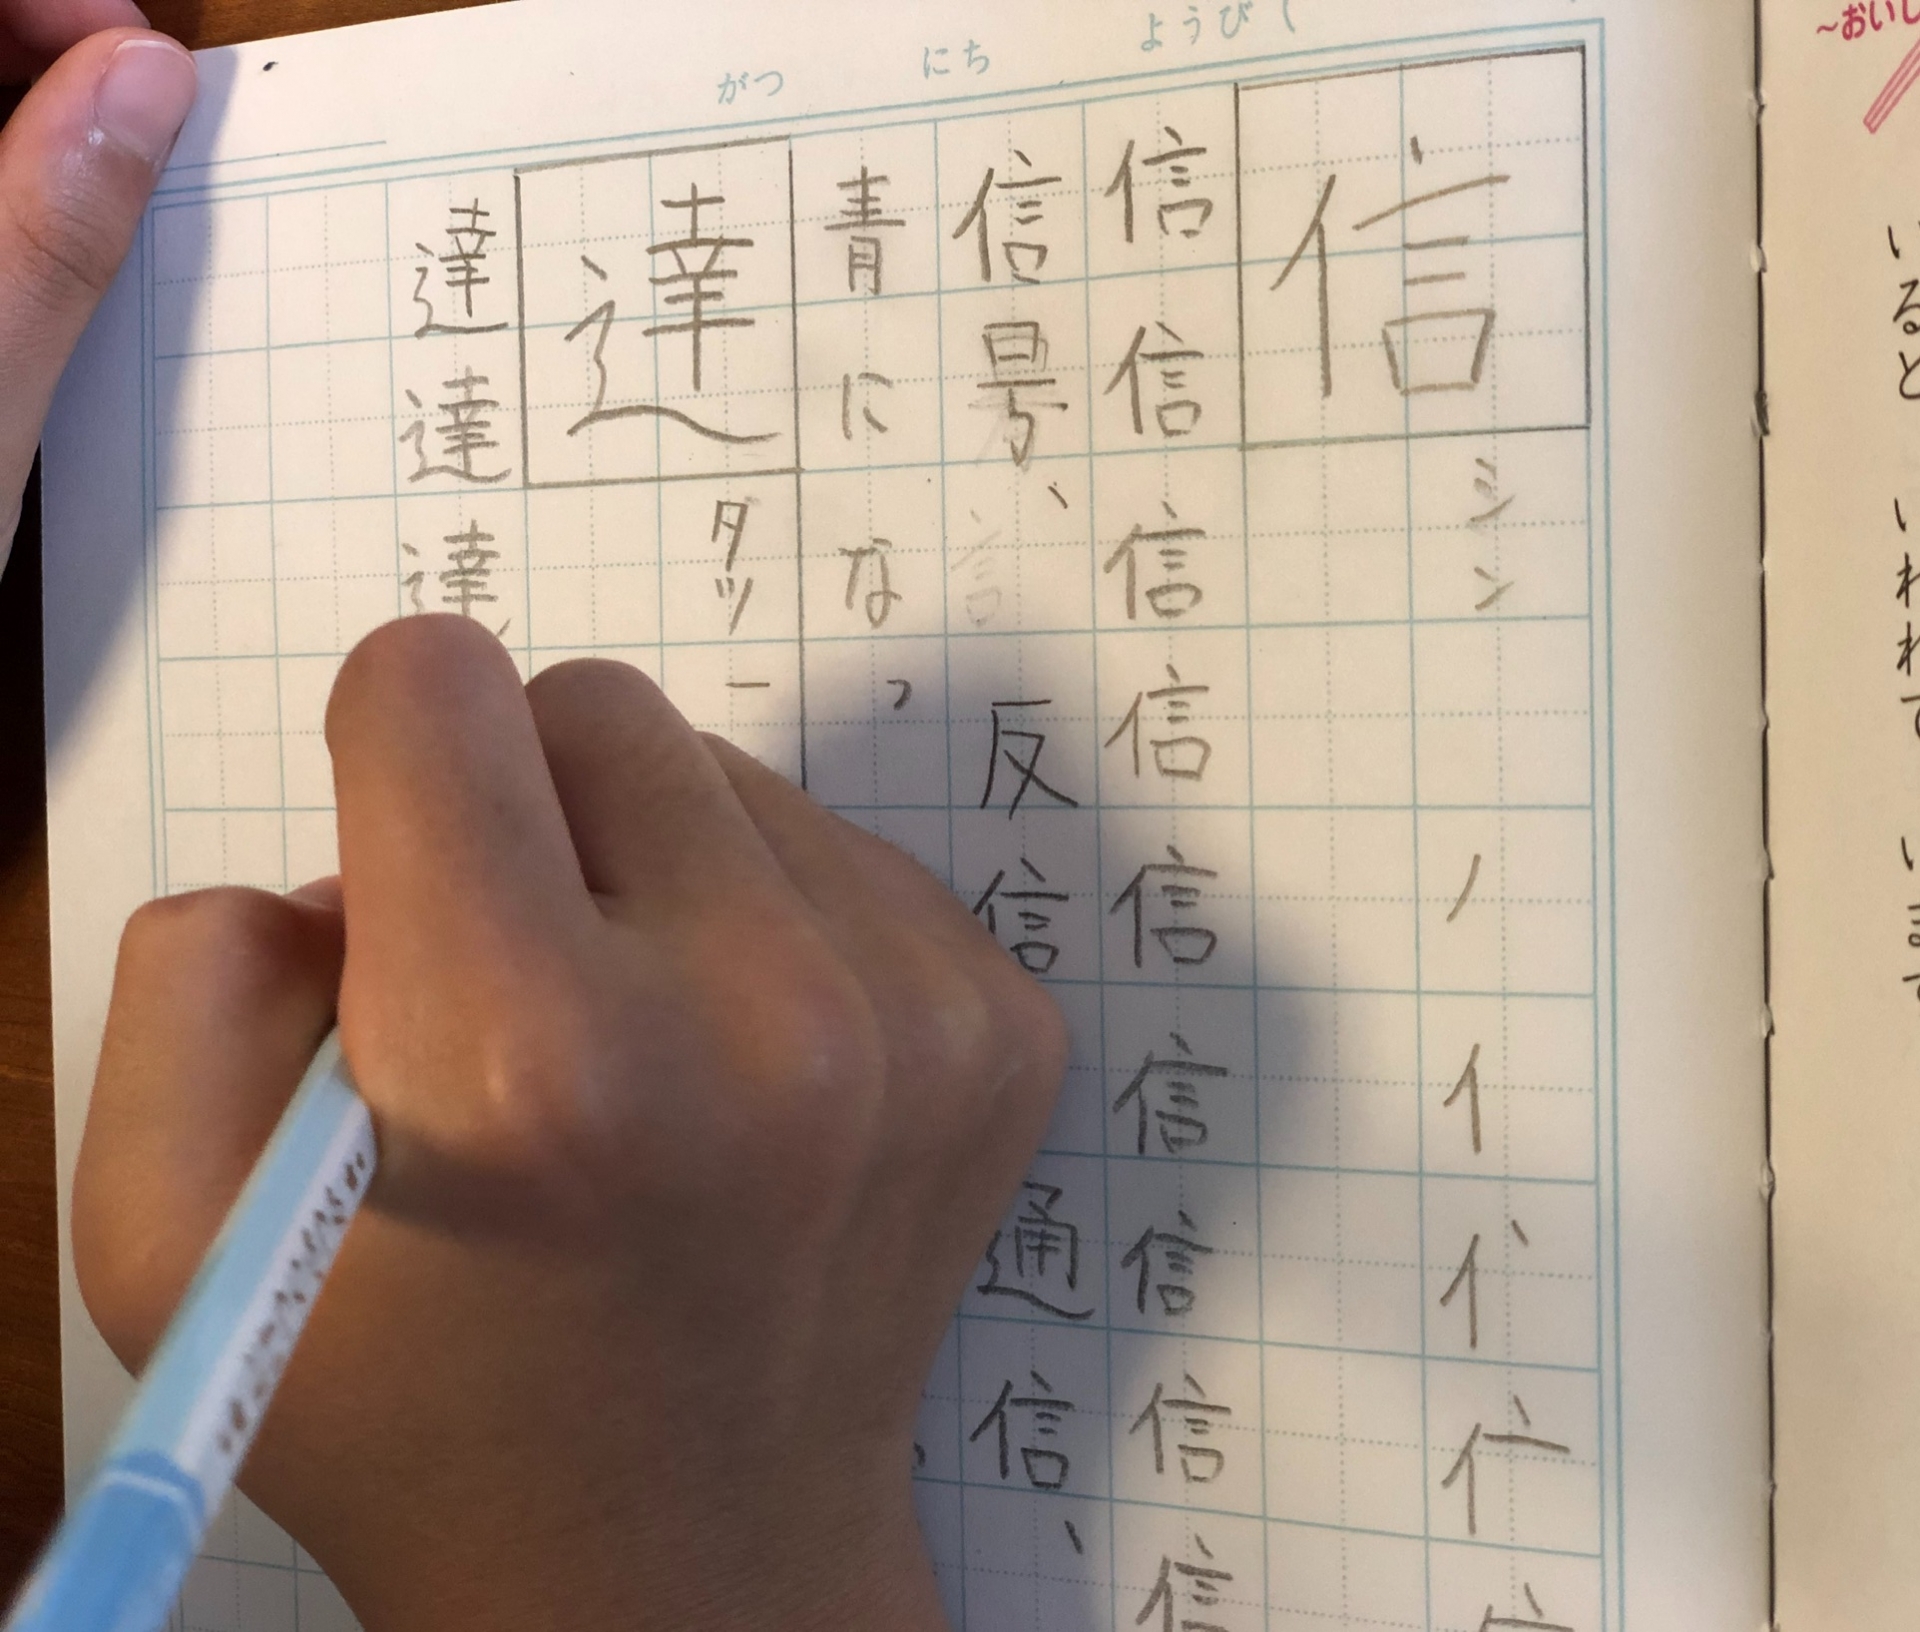 がつ にち ようび
信
シン
ノ
イ
信信信信信信信信信
信号、反信
通信、
青になっ
達
タツ
達達達
～おいし
いると いわれて います